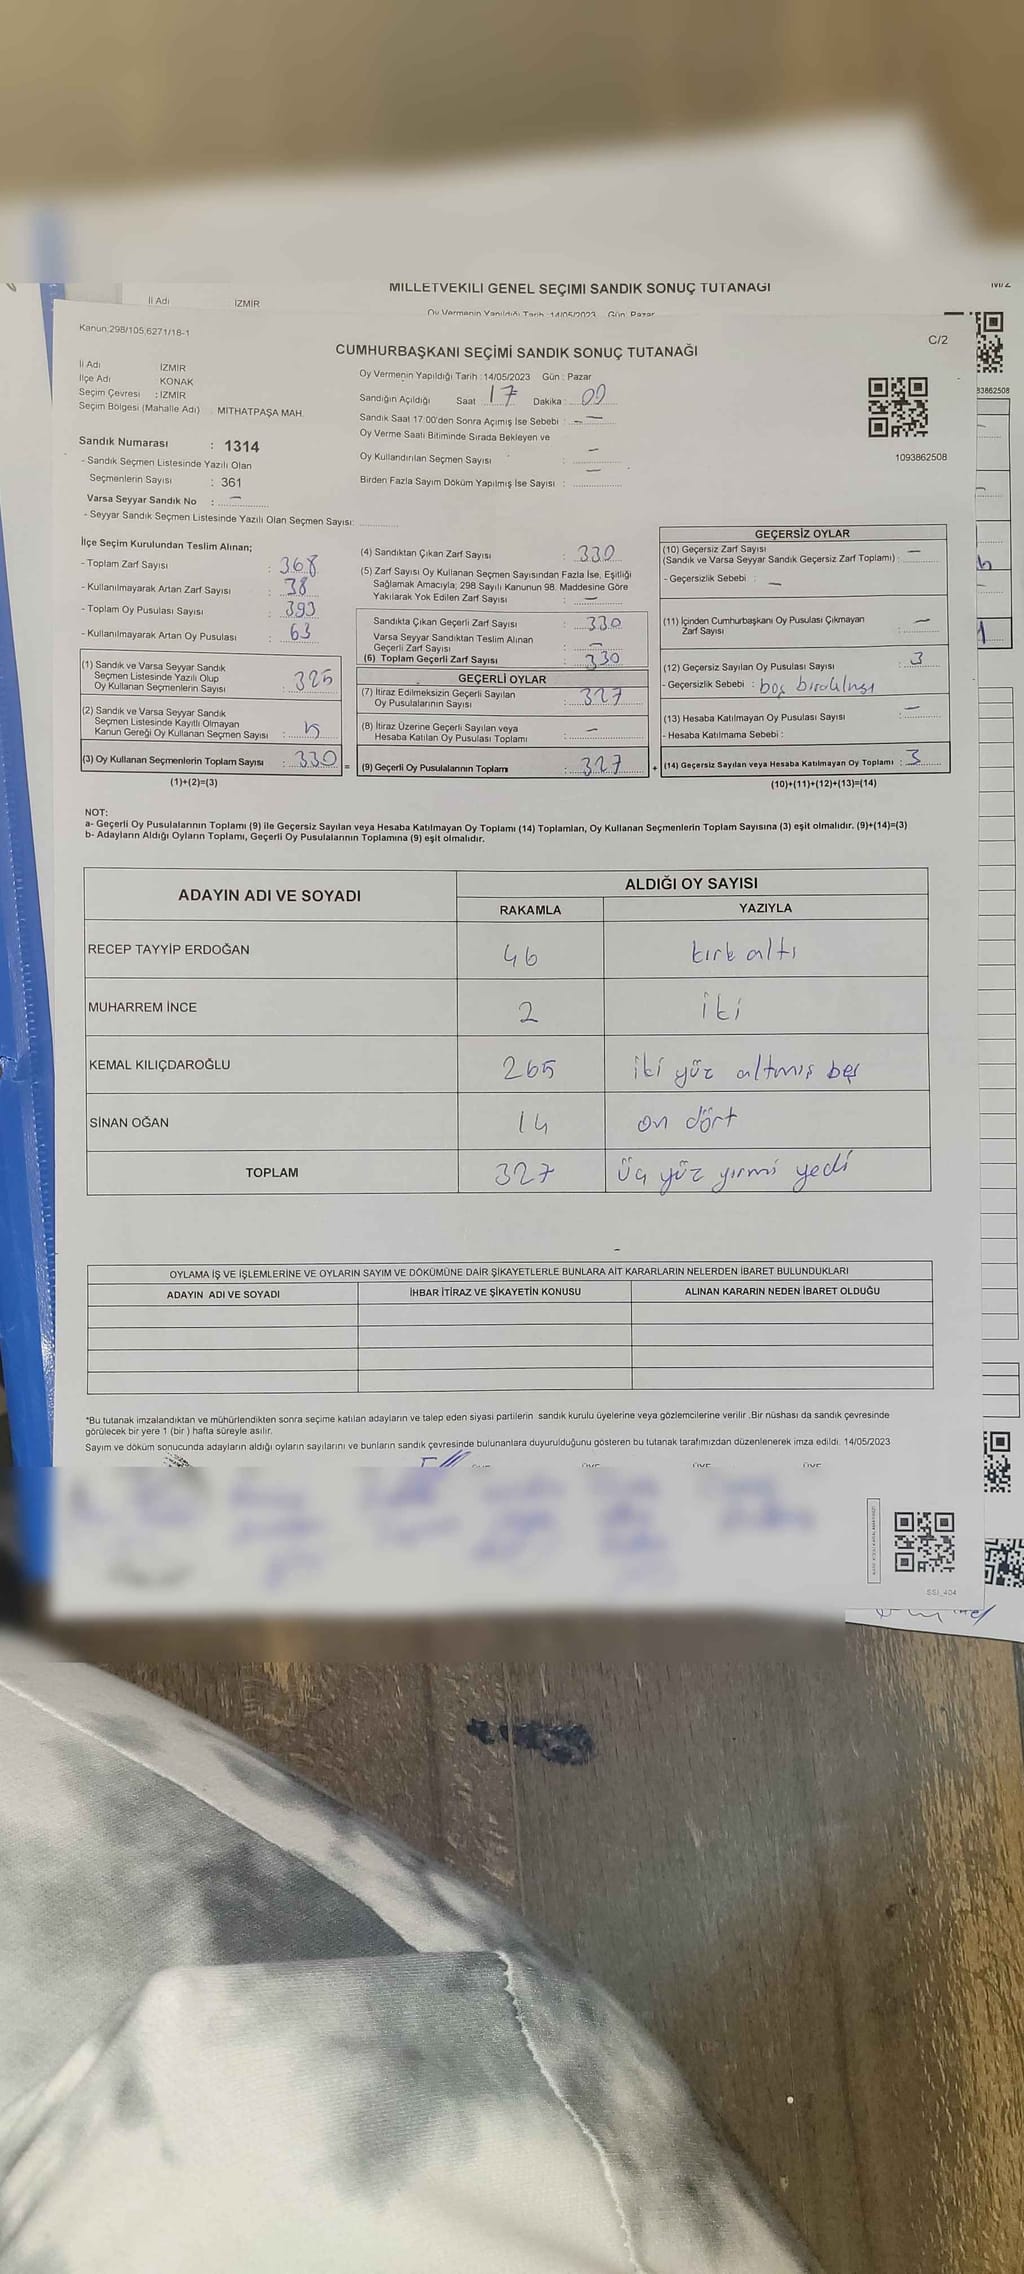 MİLLETVEKİLİ GENEL SEÇİMİ SANDIK SONUÇ TUTANAĞI
İl Adı İZMİR
Oy Vermenin Yapıldığı Tarih :14/05/2023 Gün: Pazar
Kanun:298/105,6271/18-1
C/2
CUMHURBAŞKANI SEÇİMİ SANDIK SONUÇ TUTANAĞI
İl Adı İZMİR
İlçe Adı KONAK
Seçim Çevresi : İZMİR
Seçim Bölgesi (Mahalle Adı) : MİTHATPAŞA MAH.
Oy Vermenin Yapıldığı Tarih :14/05/2023 Gün : Pazar
Sandığın Açıldığı Saat 17 Dakika : 00
Sandık Saat 17:00'den Sonra Açımış İse Sebebi : —
Oy Verme Saati Bitiminde Sırada Bekleyen ve
Oy Kullandırılan Seçmen Sayısı : —
Birden Fazla Sayım Döküm Yapılmış İse Sayısı : —
1093862508
93862508
Sandık Numarası : 1314
- Sandık Seçmen Listesinde Yazılı Olan
Seçmenlerin Sayısı : 361
Varsa Seyyar Sandık No : —
- Seyyar Sandık Seçmen Listesinde Yazılı Olan Seçmen Sayısı:
İlçe Seçim Kurulundan Teslim Alınan;
- Toplam Zarf Sayısı : 368
- Kullanılmayarak Artan Zarf Sayısı : 38
- Toplam Oy Pusulası Sayısı : 393
- Kullanılmayarak Artan Oy Pusulası : 63
(1) Sandık ve Varsa Seyyar Sandık
Seçmen Listesinde Yazılı Olup
Oy Kullanan Seçmenlerin Sayısı : 325
(2) Sandık ve Varsa Seyyar Sandık
Seçmen Listesinde Kayıtlı Olmayan
Kanun Gereği Oy Kullanan Seçmen Sayısı : 5
(3) Oy Kullanan Seçmenlerin Toplam Sayısı : 330 =
(1)+(2)=(3)
(4) Sandıktan Çıkan Zarf Sayısı : 330
(5) Zarf Sayısı Oy Kullanan Seçmen Sayısından Fazla İse, Eşitliği
Sağlamak Amacıyla; 298 Sayılı Kanunun 98. Maddesine Göre
Yakılarak Yok Edilen Zarf Sayısı : —
Sandıkta Çıkan Geçerli Zarf Sayısı : 330
Varsa Seyyar Sandıktan Teslim Alınan
Geçerli Zarf Sayısı : —
(6) Toplam Geçerli Zarf Sayısı : 330
GEÇERLİ OYLAR
(7) İtiraz Edilmeksizin Geçerli Sayılan
Oy Pusulalarının Sayısı : 327
(8) İtiraz Üzerine Geçerli Sayılan veya
Hesaba Katılan Oy Pusulası Toplamı : —
(9) Geçerli Oy Pusulalarının Toplamı : 327 +
GEÇERSİZ OYLAR
(10) Geçersiz Zarf Sayısı
(Sandık ve Varsa Seyyar Sandık Geçersiz Zarf Toplamı) : —
- Geçersizlik Sebebi : —
(11) İçinden Cumhurbaşkanı Oy Pusulası Çıkmayan
Zarf Sayısı : —
(12) Geçersiz Sayılan Oy Pusulası Sayısı : 3
- Geçersizlik Sebebi : boş bırakılması
(13) Hesaba Katılmayan Oy Pusulası Sayısı : —
- Hesaba Katılmama Sebebi :
(14) Geçersiz Sayılan veya Hesaba Katılmayan Oy Toplamı : 3
(10)+(11)+(12)+(13)=(14)
NOT:
a- Geçerli Oy Pusulalarının Toplamı (9) ile Geçersiz Sayılan veya Hesaba Katılmayan Oy Toplamı (14) Toplamları, Oy Kullanan Seçmenlerin Toplam Sayısına (3) eşit olmalıdır. (9)+(14)=(3)
b- Adayların Aldığı Oyların Toplamı, Geçerli Oy Pusulalarının Toplamına (9) eşit olmalıdır.
ADAYIN ADI VE SOYADI
ALDIĞI OY SAYISI
RAKAMLA YAZIYLA
RECEP TAYYİP ERDOĞAN 46 kırk altı
MUHARREM İNCE 2 iki
KEMAL KILIÇDAROĞLU 265 iki yüz altmış beş
SİNAN OĞAN 14 on dört
TOPLAM 327 üç yüz yirmi yedi
OYLAMA İŞ VE İŞLEMLERİNE VE OYLARIN SAYIM VE DÖKÜMÜNE DAİR ŞİKAYETLERLE BUNLARA AİT KARARLARIN NELERDEN İBARET BULUNDUKLARI
ADAYIN ADI VE SOYADI İHBAR İTİRAZ VE ŞİKAYETİN KONUSU ALINAN KARARIN NEDEN İBARET OLDUĞU
*Bu tutanak imzalandıktan ve mühürlendikten sonra seçime katılan adayların ve talep eden siyasi partilerin sandık kurulu üyelerine veya gözlemcilerine verilir .Bir nüshası da sandık çevresinde
görülecek bir yere 1 (bir ) hafta süreyle asılır.
Sayım ve döküm sonucunda adayların aldığı oyların sayılarını ve bunların sandık çevresinde bulunanlara duyurulduğunu gösteren bu tutanak tarafımızdan düzenlenerek imza edildi. 14/05/2023
ÜYE ÜYE ÜYE ÜYE
SSİ_404